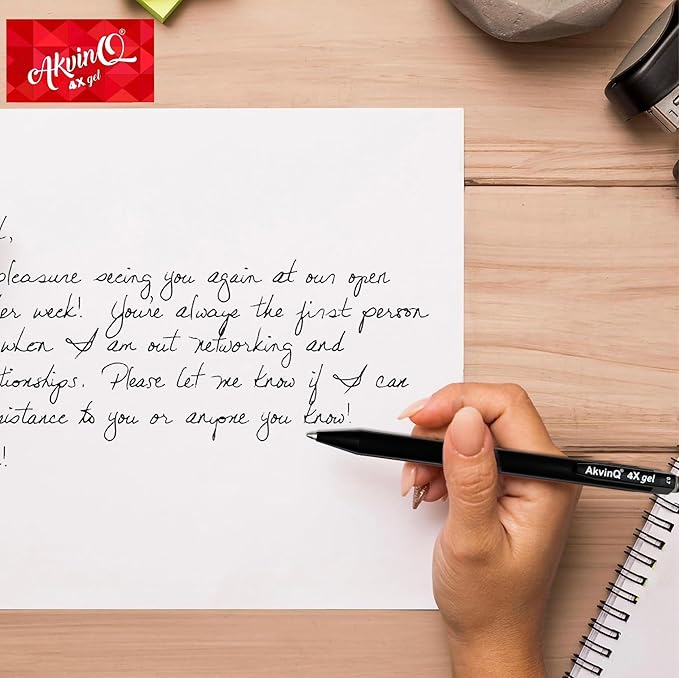 AkvinQ
4X gel
,
pleasure seeing you again at our open
er week! You're always the first person
when I am out networking and
tionships. Please let me know if I can
sistance to you or anyone you know!
!
AkvinQ® 4X gel